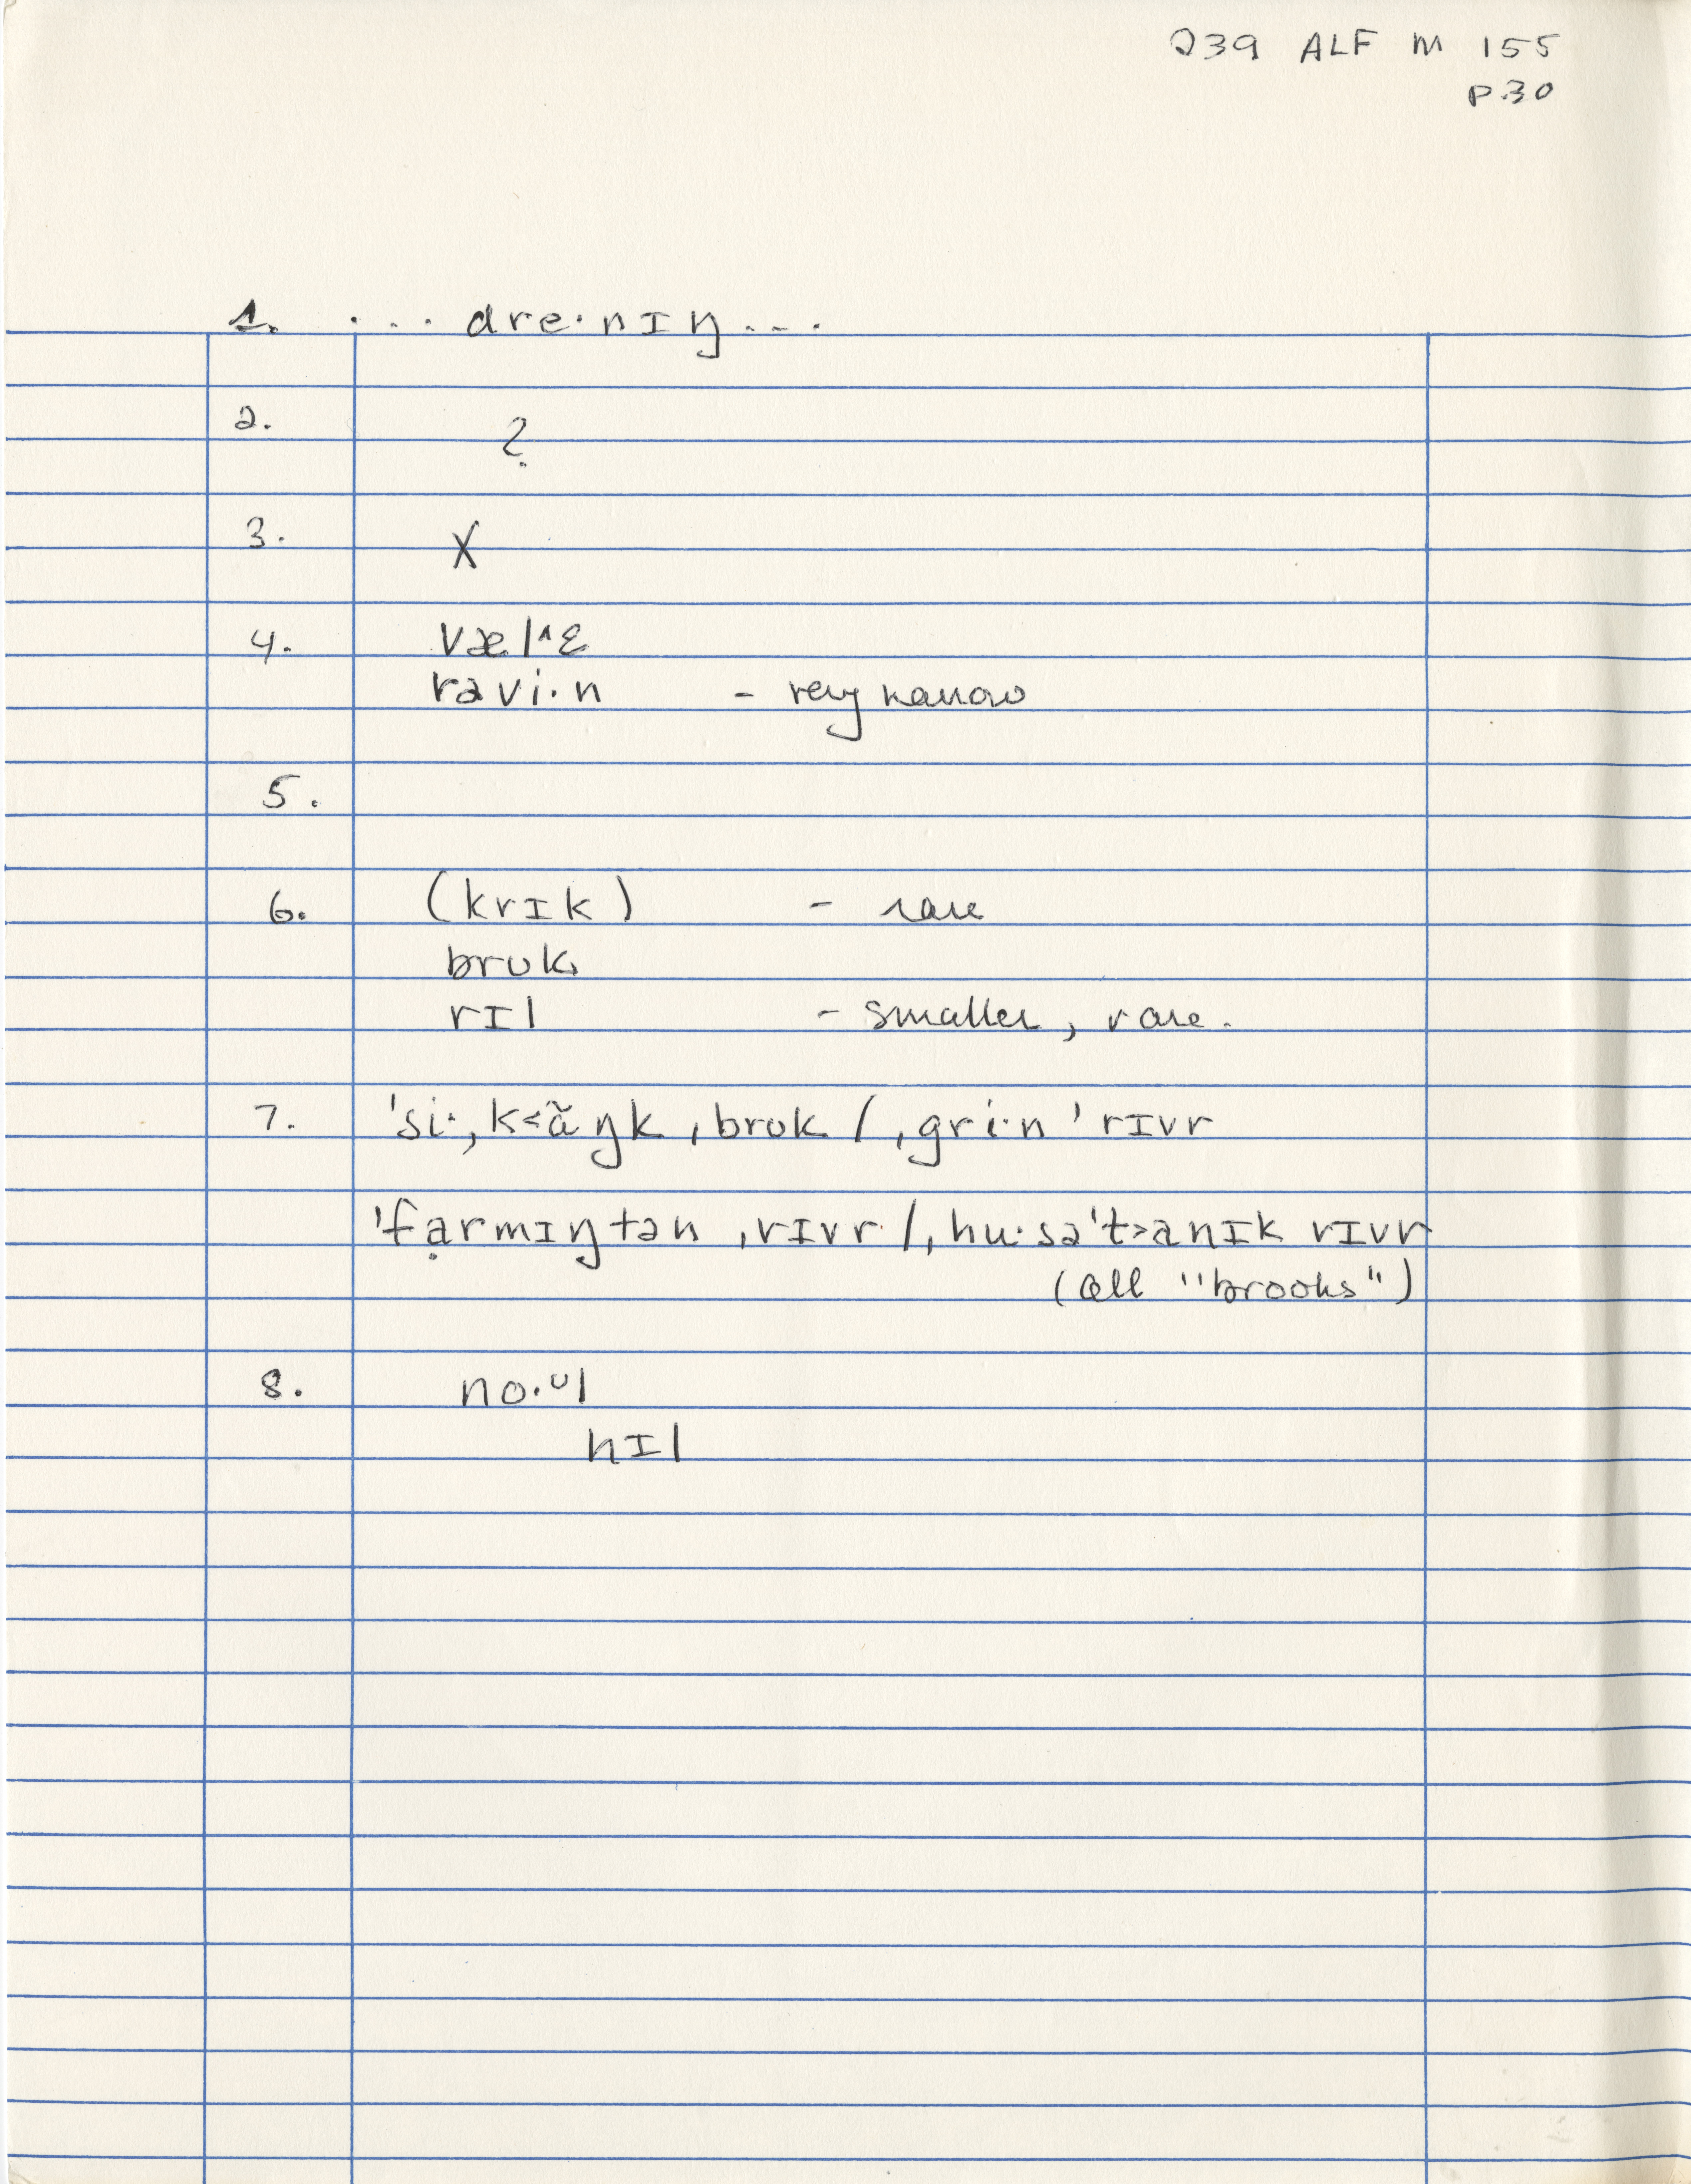 239 ALF M 155
P30
1. ... dre·nɪŋ...
2. ?
3. X
4. væl^ɛ
rəvi·n - very narrow
5.
6. (krɪk) - rare
brʊk
rɪl - smaller, rare.
7. 'si·,k<ãŋk ,brʊk /,gri·n 'rɪvr
'fạrmɪŋtən ,rɪvr /, hu·sə't>anɪk rɪvr
(all "brooks")
8. no·ᵁl
hɪl